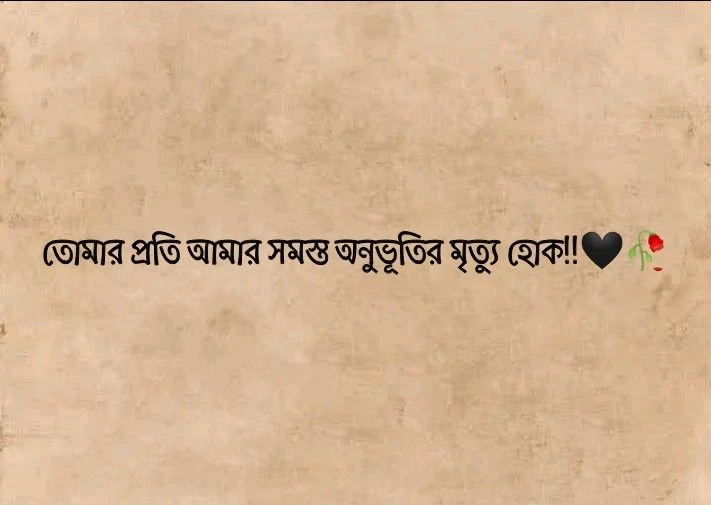 তোমার প্রতি আমার সমস্ত অনুভূতির মৃত্যু হোক!!🖤🥀